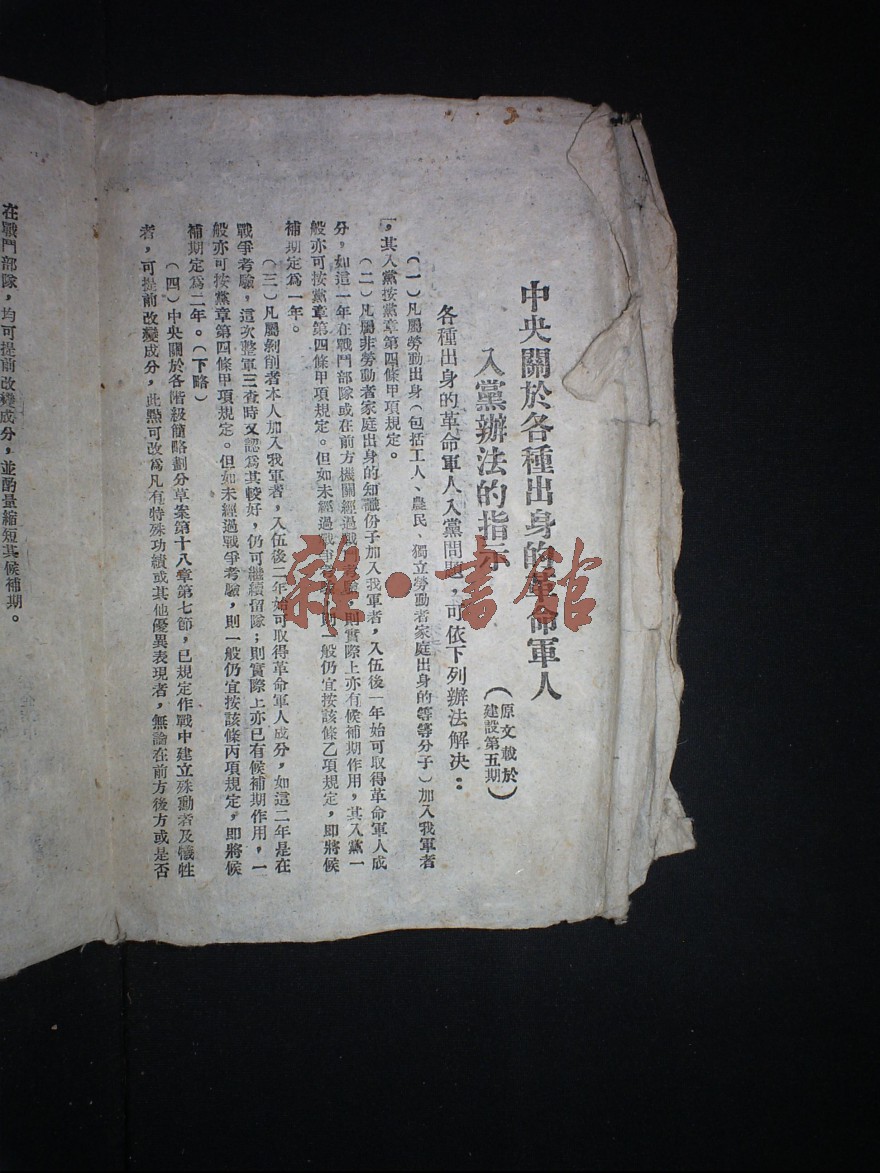 中央關於各種出身的革命軍人
入黨辦法的指示
(原文載於
建設第五期)
各種出身的革命軍人入黨問題,可依下列辦法解決:
(一)凡屬勞動出身(包括工人、農民、獨立勞動者家庭出身的等等分子)加入我軍者
,其入黨按黨章第四條甲項規定。
(二)凡屬非勞動者家庭出身的知識份子加入我軍者,入伍後一年始可取得革命軍人成
分,如這一年在戰鬥部隊或在前方機關經過戰,則實際上亦有候補期作用,其入黨一
般亦可按黨章第四條甲項規定。但如未經過戰爭,則一般仍宜按該條乙項規定,即將候
補期定爲一年。
(三)凡屬剝削者本人加入我軍者,入伍後二年始可取得革命軍人成分,如這二年是在
戰爭考驗,這次整軍三查時又認爲其較好,仍可繼續留隊;則實際上亦已有候補期作用,一
般亦可按黨章第四條甲項規定。但如未經過戰爭考驗,則一般仍宜按該條丙項規定,即將候
補期定爲二年。(下略)
(四)中央關於各階級簡略劃分草案第十八章第七節,已規定作戰中建立殊勳者及犧牲
者,可提前改變成分,此點可改爲凡有特殊功績或其他優異表現者,無論在前方後方或是否
在戰鬥部隊,均可提前改變成分,並酌量縮短其候補期。
雜·書館